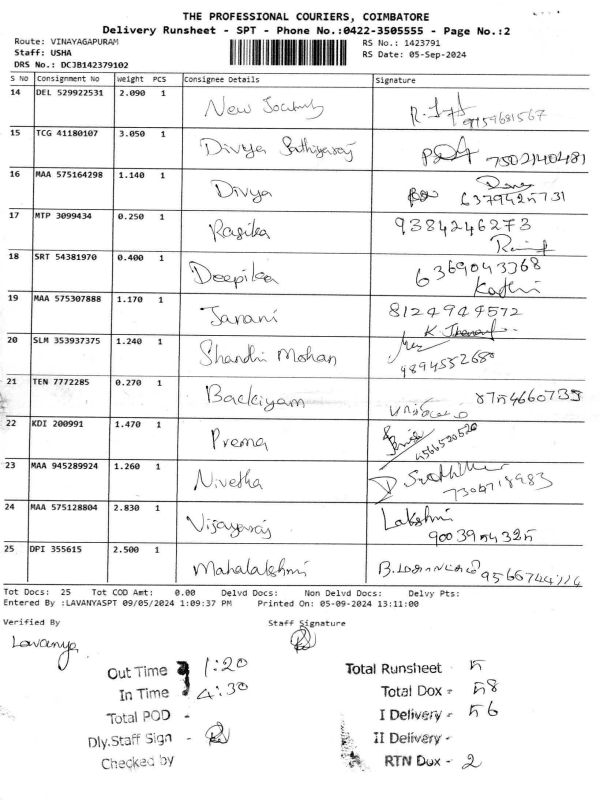 THE PROFESSIONAL COURIERS, COIMBATORE
Delivery Runsheet - SPT - Phone No.:0422-3505555 - Page No.:2
Route: VINAYAGAPURAM RS No.: 1423791
Staff: USHA RS Date: 05-Sep-2024
DRS No.: DCJB142379102
S No Consignment No Weight PCS Consignee Details Signature
14 DEL 529922531 2.090 1 New
15 TCG 41180107 3.050 1 Divya Sathiyaraj 7502140481
16 MAA 575164298 1.140 1 Divya 6379425731
17 MTP 3099434 0.250 1 Rasika 9384246273
18 SRT 54381970 0.400 1 Deepika 6369043368
19 MAA 575307888 1.170 1 Janani 8124944572
20 SLM 353937375 1.240 1 Shandhi Mohan 9894552680
21 TEN 7772285 0.270 1 Backiyam
22 KDI 200991 1.470 1 Prema
23 MAA 945289924 1.260 1 Nivetha
24 MAA 575128804 2.830 1 Vijayaraj Lakshmi
9003954325
25 DPI 355615 2.500 1 Mahalakshmi
Tot Docs: 25 Tot COD Amt: 0.00 Delvd Docs: Non Delvd Docs: Delvy Pts:
Entered By :LAVANYASPT 09/05/2024 1:09:37 PM Printed On: 05-09-2024 13:11:00
Verified By Staff Signature
Lavanya
Out Time 1:20 Total Runsheet - 5
In Time 4:30 Total Dox - 58
Total POD - I Delivery - 56
Dly.Staff Sign - II Delivery -
Checked by RTN Dox - 2